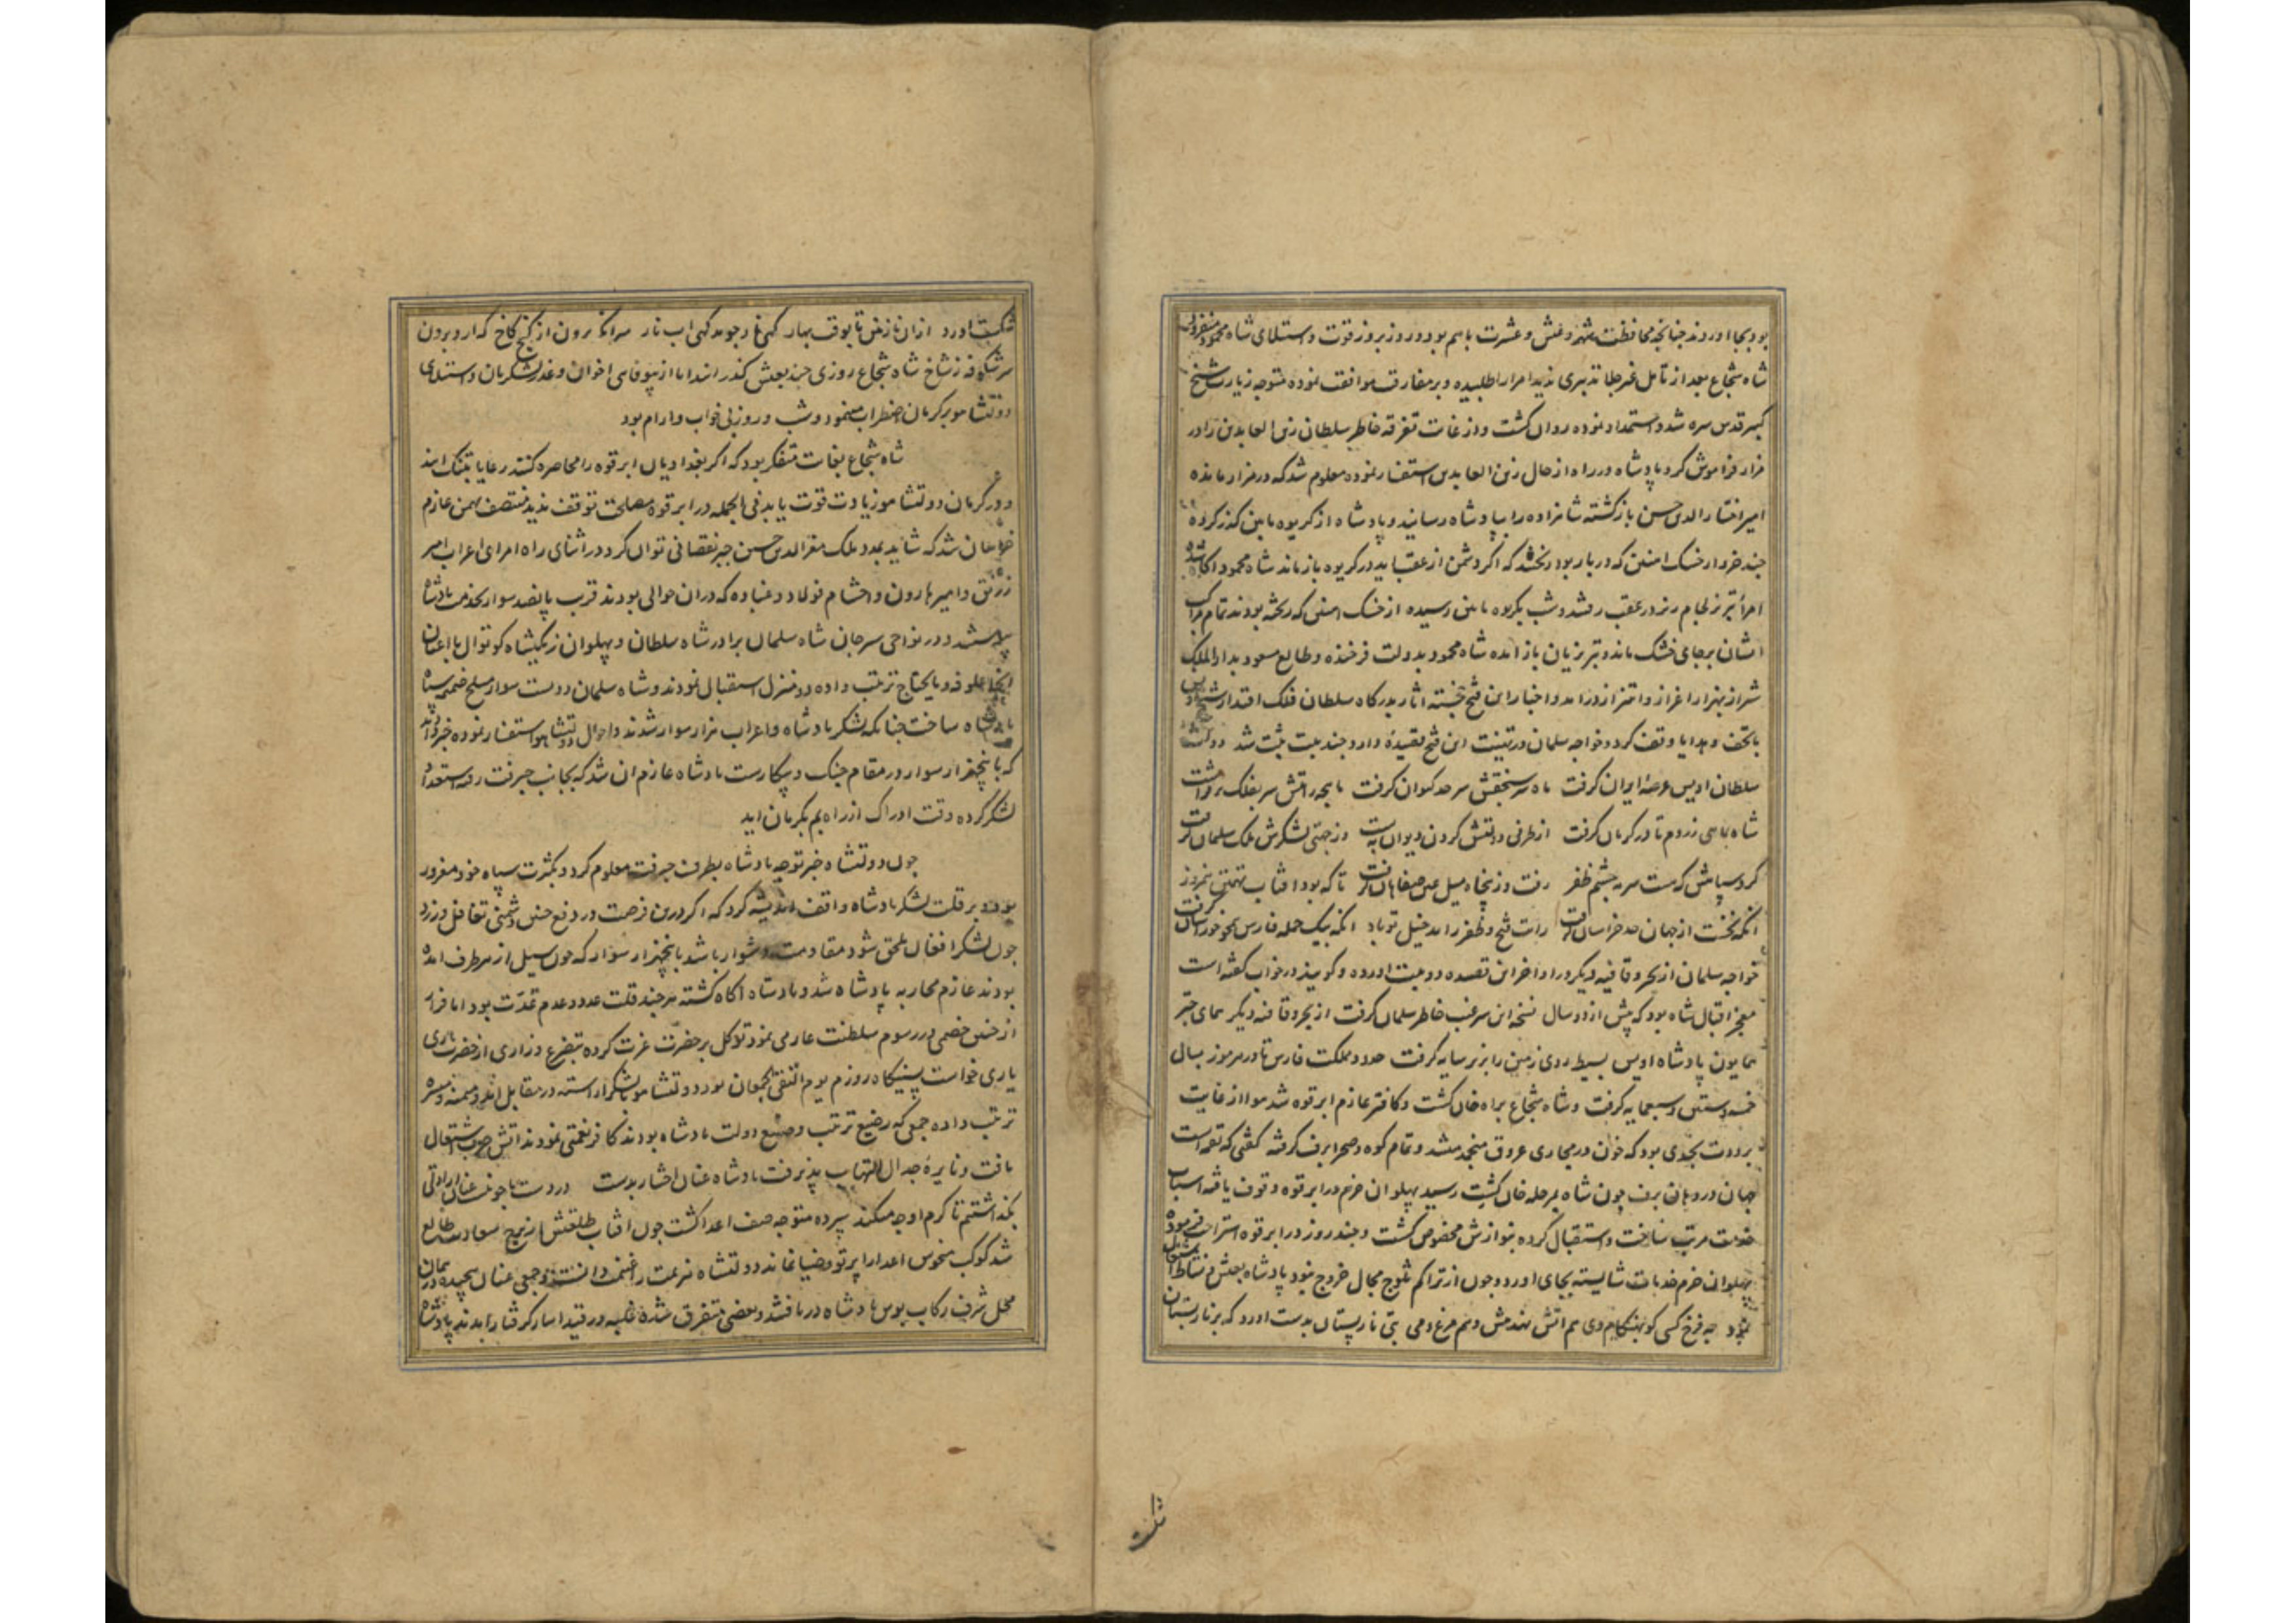 بود بجا اوردند جنانجه محافظت شهر و عیش و عشرت باهم بود و روز بروز قوت و استیلای شاه محمود
شاه شجاع بعد از تامل غیر جلا تدبیری ندید امرا را طلبیده و بر مفارقت موافقت نموده متوجه زیارت شیخ
کبیر قدس سره شد و استمداد نموده روان کشت و از غایت تفرقه خاطر سلطان زین العابدین را در
مزار فراموش کرد پادشاه در راه از حال زین العابدین استفسار نموده معلوم شد که در مزار مانده
امیر اختیار الدین حسن بازکشته شاهزاده را بپادشاه رسانید و پادشاه از کریوه مایین کذر کرده
جند خروار خسک اهنین که در بار بود ریختند که اکر دشمن از عقب اید در کریوه باز ماند شاه محمود اکاه شد
امراء تبریز لجام ریز در عقب رفتند و شب بکریوه مایین رسیده از خسک اهنین که ریخته بودند تمام مراکب
ایشان بر جای خشک ماند و تبریزیان باز امده شاه محمود بدولت فرخنده و طالع مسعود بدار الملک
شیراز بهزار اعزاز و اهتزاز درامد و اخبار این فتح خجسته اثار بدرکاه سلطان فلک اقتدار شیخ اویس
با تحف و هدایا وقف کرد و خواجه سلمان در تهنیت این فتح قصیدهٔ دارد جند بیت ثبت شد دولت
سلطان اویس عرصهٔ ایران کرفت ماه سر سنجقش سرحد کیوان کرفت ماهچه رایتش سر بفلک برفراشت
شاه بماهی ز روم تا در کرمان کرفت از طرفی دولتش کردن دیوان ببست وز جهتی لشکرش ملک سلیمان کرفت
کرد سپاهش که هست سرمه جشم ظفر رفت و ز پنجاه میل عین صفاهان کرفت تا که بود افتاب تهمتن نیمروز
انکه نخست از جهان حد خراسان کرفت رایت فتح و ظفر زاید خیل تو باد انکه بیک حمله فارس همجو خورسان کرفت
خواجه سلمان از بحر و قافیه دیکر در اواخر این قصیده دو بیت اورده و کویند در خواب کفته است
معجز اقبال شاه بود که پیش از دو سال نسخه این سر غیب خاطر سلمان کرفت از بحر و قافیه دیکر همای جتر
همایون پادشاه اویس بسیط روی زمین را بزیر سایه کرفت حدود مملکت فارس تا در هرموز بسال
خمسه و ستین و سبعمایه کرفت و شاه شجاع براه خان کشت و کافتر عازم ابرقوه شد هوا از غایت
برودت بحدی بود که خون در مجاری عروق منجمد میشد و تمام کوه و صحرا برف کرفته کفتی که لقمه است
جهان در دهان برف چون شاه بمرحله خان کشت رسید پهلوان خرم در ابرقوه وقوف یافته اسباب
خدمت مرتب ساخت و استقبال کرده بنوازش مخصوص کشت و جند روز در ابرقوه استراحت فرموده
پهلوان خرم خدمات شایسته بجای اورد و جون از تراکم ثلوج مجال خروج نبود پادشاه بعیش و نشاط اشتغال
نمود جه فرخ کسی کو بهنکام دی هم اتش نهد پیش و هم مرغ و می بتی نار پستان بدست اورد که بر نار بستان
شکست
شکست اورد ازان نازنین تا بوقت بهار کهی غا و جوید کهی اب نار سر انکه برون از کنج کاخ که ارد برون
سر شکوفه ز شاخ شاه شجاع روزی جند بعیش کذرانید اما از بیوفایی اخوان و غدر لشکریان و استیلای
دولتشاه بر کرمان اضطراب مینمود و شب و روز بی خواب و ارام بود
شاه شجاع بغایت متفکر بود که اکر بغدادیان ابرقوه را محاصره کنند رعایا بتنک ایند
و در کرمان دولتشاه نیز زیادت قوت یابد فی الجمله در ابرقوه مصلحت توقف ندید منتصف بهمن عازم
شد که شاید بمدد ملک معز الدین حسین جبر نقصانی توان کرد در اثنای راه امرای اعراب امیر
و امیر هارون و احشام فولاد و عباده که دران حوالی بودند قریب پانصد سوار بخدمت پادشاه
پیوستند و در نواحی سیرجان شاه سلیمان برادر شاه سلطان و پهلوان کوتوال با اعیان
انجا علوفه و مایحتاج ترتیب داده دو منزل استقبال نمودند و شاه سلیمان دویست سوار مسلح ضمیمه سپاه
پادشاه ساخت جنانکه لشکر پادشاه و اعراب هزار سوار شدند و احوال دولتشاه استفسار نموده خبر دادند
که با پنجهزار سوار در مقام جنک و پیکارست پادشاه عازم ان شد که بجانب جیرفت رفته استعداد
لشکر کرده وقت ادراک از راه بم بکرمان اید
جون دولتشاه خبر توجه پادشاه بطرف جیرفت معلوم کرد و بکثرت سپاه خود مغرور
بود و بر قلت لشکر پادشاه واقف اندیشه کرد که اکر درین فرصت در دفع جنین دشمنی تغافل ورزد
جون لشکر افغان ملحق شود مقاومت دشوار باشد با پنجهزار سوار که جون سیل از هر طرف امده
بودند عازم محاربه پادشاه شد و پادشاه اکاه کشته هر جند قلت عدد و عدم عدت بود اما فرار
از جنین خصمی در رسوم سلطنت عار می نمود توکل بر حضرت عزت کرده بتضرع و زاری از حضرت باری
یاری خواست پیشکاه روزم یوم التقی الجمعان بود دولتشاه با لشکر اراسته در مقابل امد و میمنه و میسره
ترتیب داده جمعی که رضیع تربیت و صنیع دولت پادشاه بودند کافر نعمتی نمودند اتش حرب اشتعال
یافت و نایرهٔ جدال التهاب پذیرفت پادشاه عنان اختیار بدست در دست ناجونت عنان ارادتی
بکذاشتم تا کرم او جه میکند سپرده متوجه صف اعدا کشت جون افتاب طلعتش از برج سعادت طالع
شد کوکب منحوس اعدا را پرتو و ضیا نماند دولتشاه هزیمت را غنیمت دانست و جمعی عنان پیجیده در همان
محل شرف رکاب بوس پادشاه دریافتند و بعضی متفرق شده غلبه در قید اسار کرفتار امدند پادشاه